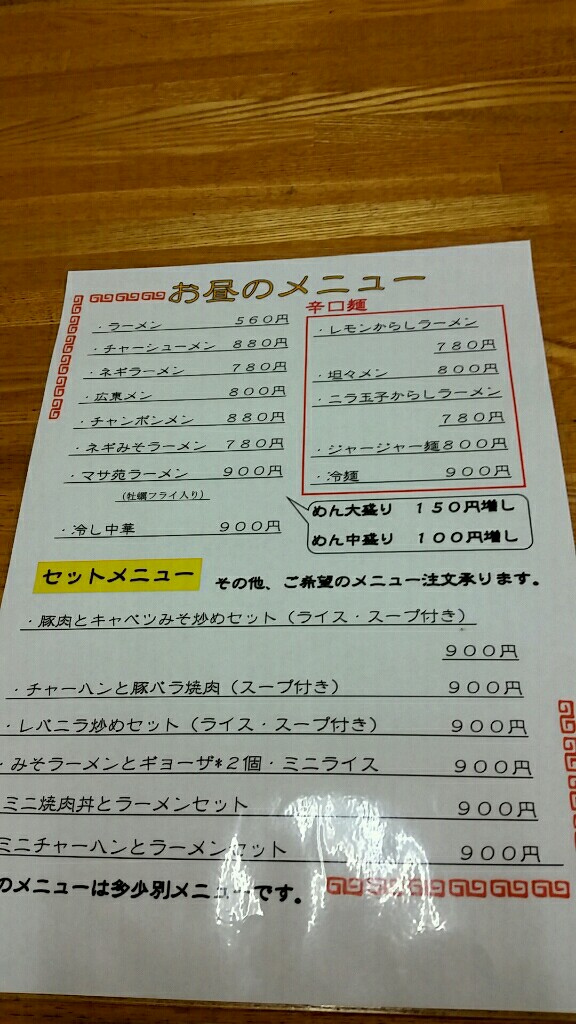 お昼のメニュー
・ラーメン 560円
・チャーシューメン 880円
・ネギラーメン 780円
・広東メン 800円
・チャンポンメン 880円
・ネギみそラーメン 780円
・マサ苑ラーメン 900円
(牡蠣フライ入り)
・冷し中華 900円
辛口麺
・レモンからしラーメン
780円
・坦々メン 800円
・ニラ玉子からしラーメン
780円
・ジャージャー麺800円
・冷麺 900円
めん大盛り 150円増し
めん中盛り 100円増し
セットメニュー その他、ご希望のメニュー注文承ります。
・豚肉とキャベツみそ炒めセット(ライス・スープ付き)
900円
・チャーハンと豚バラ焼肉(スープ付き) 900円
・レバニラ炒めセット(ライス・スープ付き) 900円
・みそラーメンとギョーザ*2個・ミニライス 900円
ミニ焼肉丼とラーメンセット 900円
ミニチャーハンとラーメンセット 900円
のメニューは多少別メニューです。